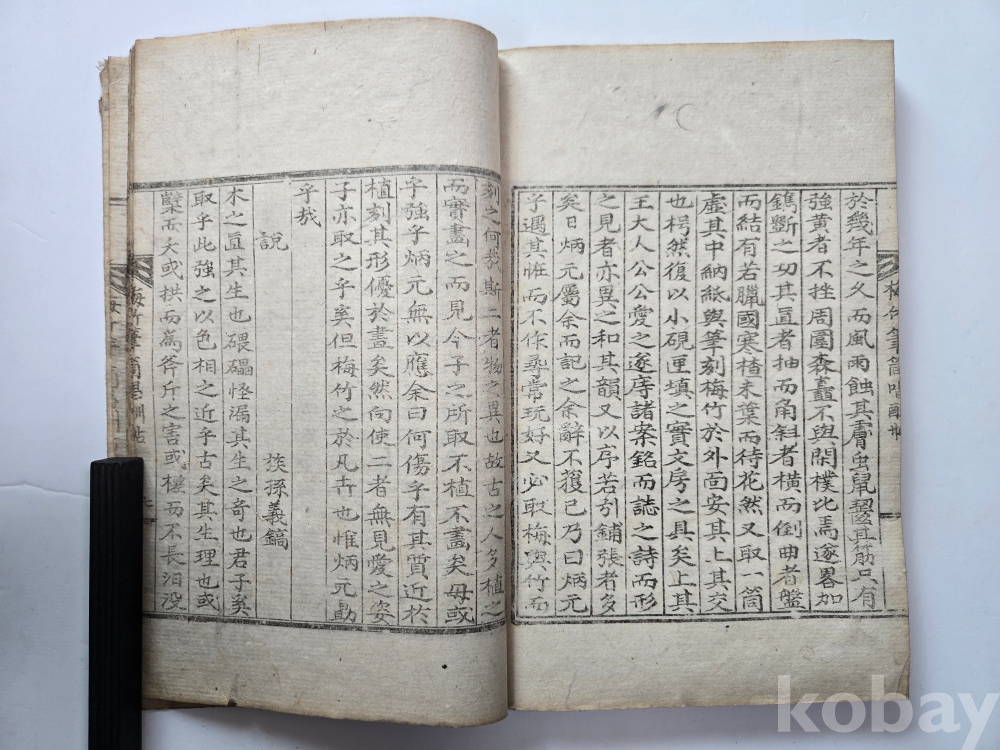 於幾年之久而風雨蝕其膚虫鼠齧其筋只有
強黃者不挫周圍森矗不與閑樸比焉遂畧加
鐫斲之功其直者抽而角斜者橫而倒曲者盤
而結有若臘國寒楂未葉而待花然又取一筒
虛其中納紙與筆刻梅竹於外面安其上其交
也枵然復以小硯匣塡之實文房之具矣上其
王大人公公愛之遂序諸案銘而誌之詩而形
之見者亦異之和其韻又以序若引鋪張者多
矣日炳元屬余而記之余辭不獲已乃曰炳元
乎過其怪而不作彛常玩好又必取梅與竹而
刻之何哉斯二者物之異也故古之人多植之
而實畫之而見今子之所取不植不畫矣毋或
乎強乎炳元無以應余曰何傷乎有其質近於
植刻其形優於畫矣然向使二者無見愛之安
子亦取之乎矣但梅竹之於凡卉也惟炳元勖
乎哉
說
族孫義鎬
木之直其生也碨礧怪漏其生之奇也君子矣
取乎此強之以色相之近乎古矣其生理也或
櫱而大或拱而爲斧斤之害或櫰而不長汨没
梅竹筆筒唱酬帖
梅竹筆筒唱酬帖
kobay